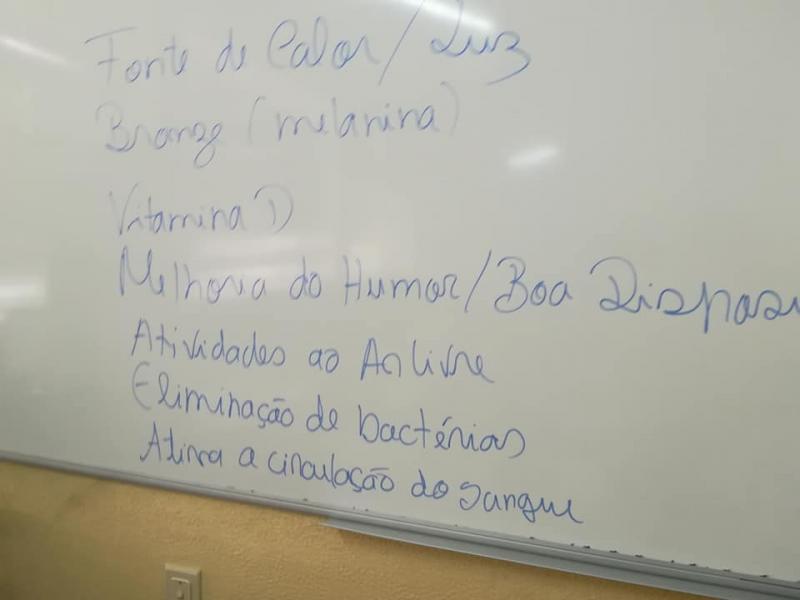 Fonte de Calor / Luz
Bronze (melanina)
Vitamina D
Melhoria do Humor / Boa Disposi
Atividades ao Ar livre
Eliminação de bactérias
Ativa a circulação do sangue